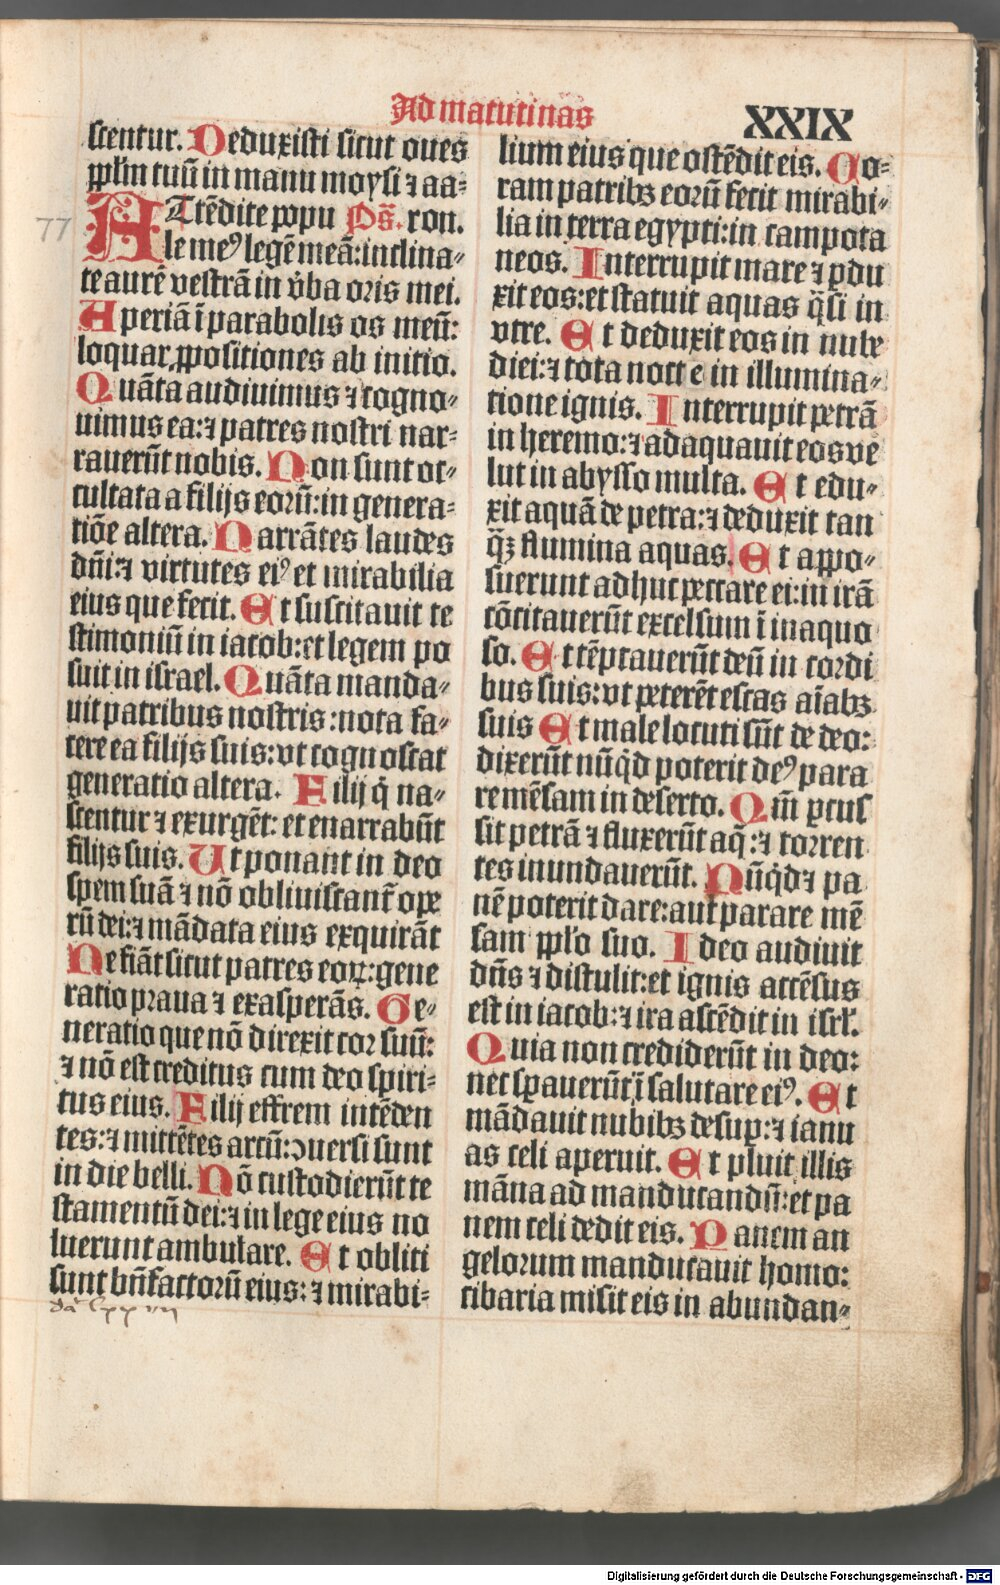 Ad matutinas
XXIX
scentur. Deduxisti sicut oues
ꝓplm̄ tuū in manu moysi ⁊ aa⸗
77
ATtēdite popu Ps̄. ron.
le meꝰ legē meā: inclina⸗
te aurē vestrā in v̓ba oris mei.
Aperiā ī parabolis os meū:
loquar ꝓpositiones ab initio.
Quāta audiuimus ⁊ cogno⸗
uimus ea: ⁊ patres nostri nar⸗
rauerūt nobis. Non sunt oc⸗
cultata a filijs eorū: in genera⸗
tiōe altera. Narrātes laudes
dn̄i: ⁊ virtutes eiꝰ et mirabilia
eius que fecit. Et suscitauit te
stimoniū in iacob: et legem po
suit in israel. Quāta manda⸗
uit patribus nostris: nota fa⸗
cere ea filijs suis: vt cognoscat
generatio altera. Filij q̇ na⸗
scentur ⁊ exurgēt: et enarrabūt
filijs suis. Ut ponant in deo
spem suā ⁊ nō obliuiscant̄ ope
rū dei: ⁊ mādata eius exquirāt
Ne fiāt sicut patres eoꝝ: gene
ratio praua ⁊ exasperās. Ge⸗
neratio que nō direxit cor suū:
⁊ nō est creditus cum deo spiri⸗
tus eius. Filij effrem intēden
tes: ⁊ mittētes arcū: ↄuersi sunt
in die belli. Nō custodierūt te
stamentū dei: ⁊ in lege eius no
luerunt ambulare. Et obliti
sunt bn̄factorū eius: ⁊ mirabi⸗
lium eius que ostēdit eis. Co⸗
ram patribꝫ eorū fecit mirabi⸗
lia in terra egypti: in campo ta
neos. Interrupit mare ⁊ ꝑdu
xit eos: et statuit aquas q̄si in
vtre. Et deduxit eos in nube
diei: ⁊ tota nocte in illumina⸗
tione ignis. Interrupit petrā
in heremo: ⁊ adaquauit eos ve
lut in abysso multa. Et edu⸗
xit aquā de petra: ⁊ deduxit tan
q̄ꝫ flumina aquas. Et appo⸗
suerunt adhuc peccare ei: in irā
cōcitauerūt excelsum ī inaquo
so. Et tēptauerūt deū in cordi
bus suis: vt peterēt escas aīabꝫ
suis Et male locuti sūt de deo:
dixerūt nūq̇d poterit deꝰ para
re mēsam in deserto. Qm̄ ꝑcus
sit petrā ⁊ fluxerūt aq̄: ⁊ torren
tes inundauerūt. Nūq̇d ⁊ pa
nē poterit dare: aut parare mē
sam ꝓplo suo. Ideo audiuit
dn̄s ⁊ distulit: et ignis accēsus
est in iacob: ⁊ ira ascēdit in isrl̄.
Quia non crediderūt in deo:
nec sꝑauerūt ī salutare eiꝰ. Et
mādauit nubibꝫ desuꝑ: ⁊ ianu
as celi aperuit. Et pluit illis
māna ad manducandū: et pa
nem celi dedit eis. Panem an
gelorum manducauit homo:
cibaria misit eis in abundan⸗
Digitalisierung gefördert durch die Deutsche Forschungsgemeinschaft - DFG